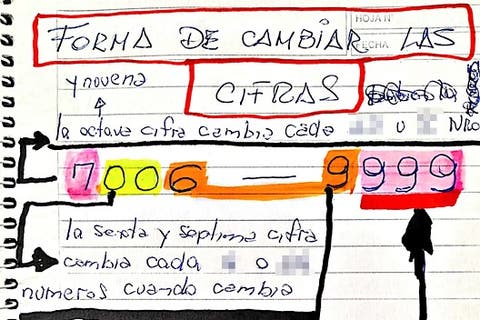 HOJA N°
FECHA
FORMA DE CAMBIAR LAS
CIFRAS
y novena
la octava cifra cambia cada o NRO
7006 — 9999
la sexta y septima cifra
cambia cada o
numeros cuando cambia